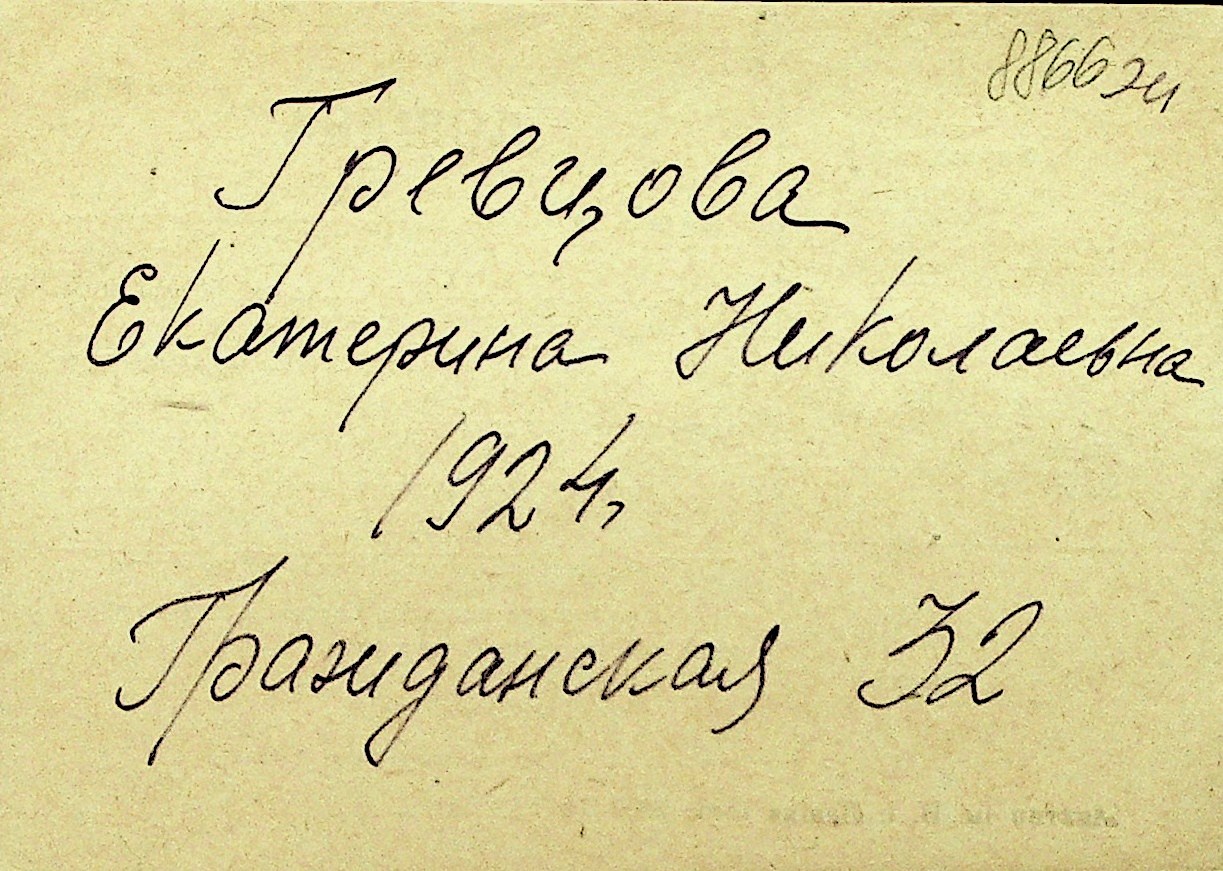 8866 эи
Гревцова
Екатерина Николаевна
1924,
Гражданская 32